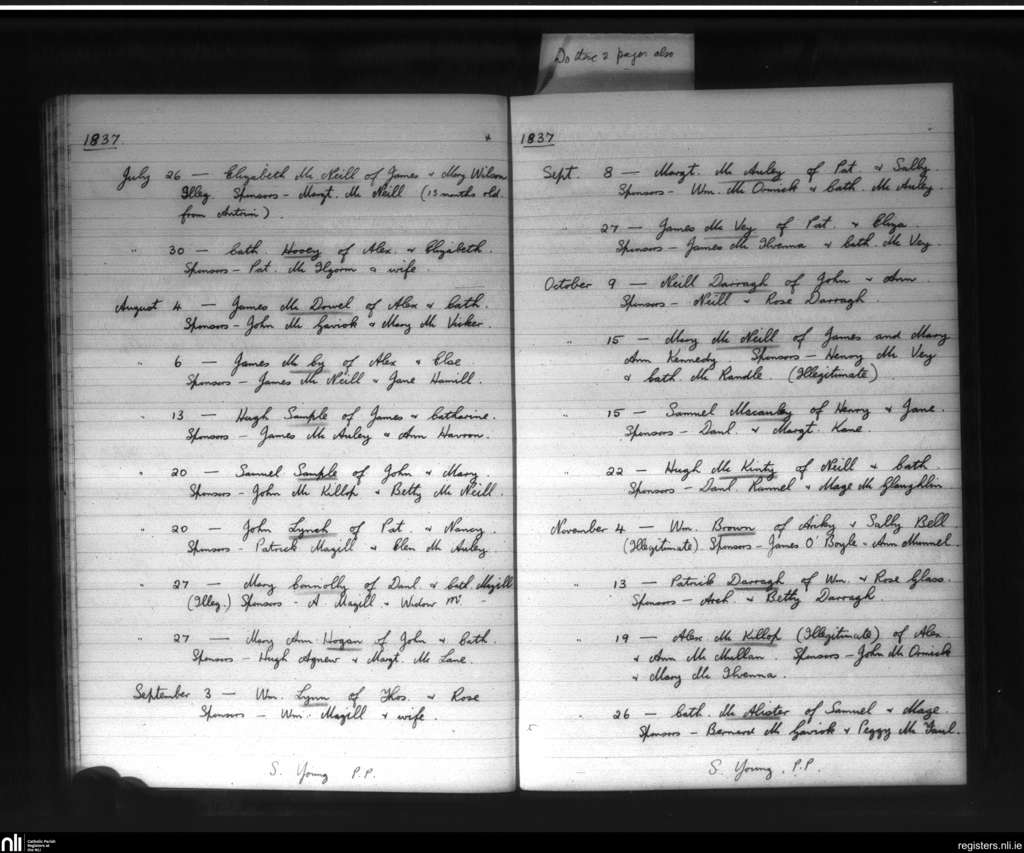 Do these 2 pages also
1837.
July 26 — Elizabeth Mc Neill of James & Mary Wilson
Illeg. Sponsors — Margt. Mc Neill (13 months old
from Antrim).
" 30 — Cath. Hovey of Alex. & Elizabeth.
Sponsors — Pat. Mc Ilgorm & wife.
August 4 — James Mc Dowel of Alex & Cath.
Sponsors — John Mc Gavick & Mary Mc Vicker.
" 6 — James Mc Coy of Alex & Else
Sponsors — James Mc Neill & Jane Hamill.
" 13 — Hugh Sample of James & Catharine.
Sponsors — James Mc Auley & Ann Havron.
" 20 — Samuel Sample of John & Mary.
Sponsors — John Mc Killop & Betty Mc Neill.
" 20 — John Lynch of Pat. & Nancy.
Sponsors — Patrick Magill & Elen Mc Auley.
" 27 — Mary Connolly of Danl & Cath Magill
(Illeg.) Sponsors — A Magill & Widow Mc —
" 27 — Mary Ann Hogan of John & Cath.
Sponsors — Hugh Agnew & Margt. Mc Lane.
September 3 — Wm. Lynn of Thos. & Rose
Sponsors — Wm. Magill & wife.
S. Young P.P.
1837
Sept. 8 — Margt. Mc Auley of Pat & Sally.
Sponsors — Wm. Mc Ormick & Cath. Mc Auley.
" 27 — James Mc Vey of Pat. & Eliza.
Sponsors — James Mc Ilvenna & Cath. Mc Vey
October 9 — Neill Darragh of John & Ann
Sponsors — Neill & Rose Darragh.
" 15 — Mary Mc Neill of James and Mary
Ann Kennedy Sponsors — Henry Mc Vey
& Cath. Mc Randle. (Illegitimate)
" 15 — Samuel Macauley of Henry & Jane.
Sponsors — Danl. & Margt. Kane.
" 22 — Hugh Mc Kinty of Neill & Cath.
Sponsors — Danl. Rannel & Mage Mc Glaughlin
November 4 — Wm. Brown of Archy & Sally Bell
(Illegitimate) Sponsors — James O'Boyle — Ann Munnel.
" 13 — Patrick Darragh of Wm. & Rose Glass.
Sponsors — Arch & Betty Darragh
" 19 — Alex Mc Killop (Illegitimate) of Alex
& Ann Mc Mullan. Sponsors — John Mc Ormick
& Mary Mc Ilvenna.
" 26 — Cath. Mc Alister of Samuel & Mage.
Sponsors — Bernard Mc Gavick & Peggy Mc Faul.
S. Young. P.P.
nli
Catholic Parish
Registers at
the NLI
registers.nli.ie